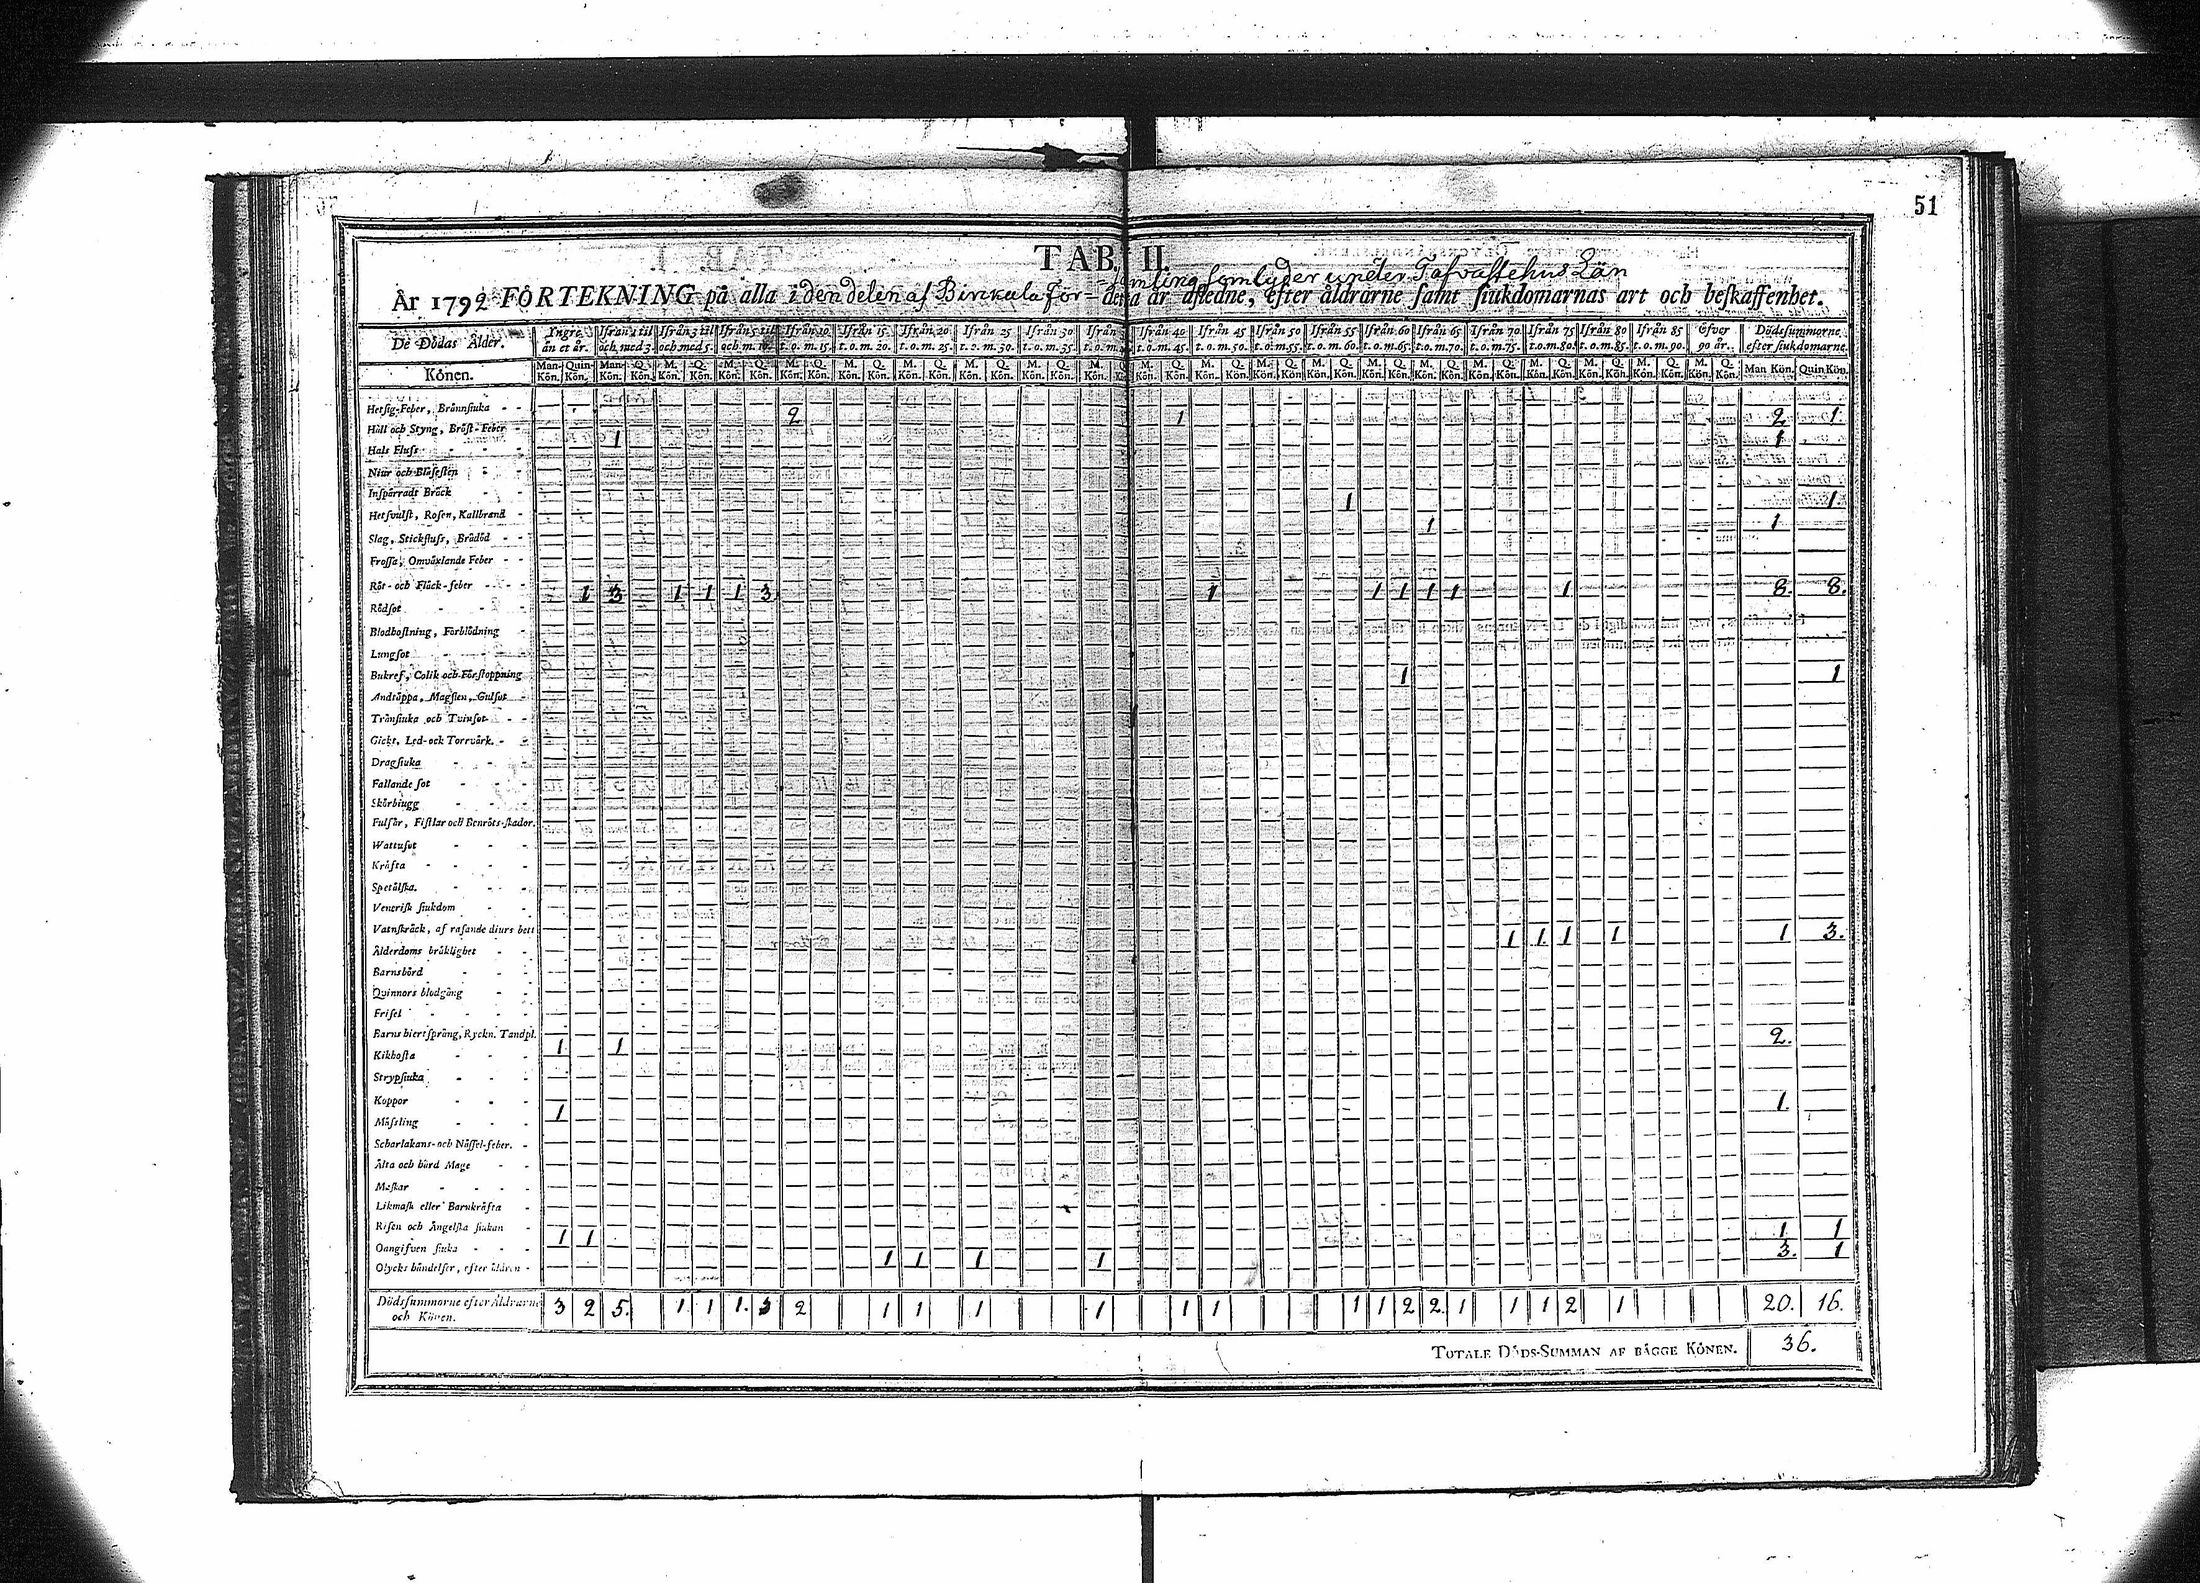 51
TAB. II.
=samling som lyder under Tafvastehus Län
År 1792 FÖRTEKNING på alla i den delen af Birckala För= detta år afledne, efter åldrarne samt siukdomarnas art och beskaffenhet.
De Dödas Ålder. Yngre än et år. Ifrån 1 til och med 3. Ifrån 3 til och med 5. Ifrån 5 til och m. 10. Ifrån 10 t. o. m. 15. Ifrån 15 t. o. m. 20. Ifrån 20 t. o. m. 25. Ifrån 25 t. o. m. 30. Ifrån 30 t. o. m. 35. Ifrån t. o. m. Ifrån 40 t. o. m. 45. Ifrån 45 t. o. m. 50. Ifrån 50 t. o. m. 55. Ifrån 55 t. o. m. 60. Ifrån 60 t. o. m. 65. Ifrån 65 t. o. m. 70. Ifrån 70 t. o. m. 75. Ifrån 75 t. o. m. 80. Ifrån 80 t. o. m. 85. Ifrån 85 t. o. m. 90. Öfver 90 år. Dödssummorne efter siukdomarne.
Könen. Man-Kön. Quin-Kön. Man-Kön. Q. Kön. M. Kön. Q. Kön. M. Kön. Q. Kön. M. Kön. Q. Kön. M. Kön. Q. Kön. M. Kön. Q. Kön. M. Kön. Q. Kön. M. Kön. Q. Kön. M. Kön. Q. M. Kön. Q. Kön. M. Kön. Q. Kön. M. Kön. Q. Kön. M. Kön. Q. Kön. M. Kön. Q. Kön. M. Kön. Q. Kön. M. Kön. Q. Kön. M. Kön. Q. Kön. M. Kön. Q. Kön. M. Kön. Q. Kön. M. Kön. Q. Kön. Man Kön. Quin Kön.
Hetsig-Feber, Brännsiuka 2 1 2 1.
Håll och Styng, Bröst-Feber 1 1
Hals Fluss
Niur och Blåsesten
Inspärradt Bråck 1 1.
Hetsvulst, Rosen, Kallbrand 1 1
Slag, Stickfluss, Brådöd
Frossa, Omväxlande Feber
Röt- och Fläck-feber 1 3 1 1 1 3 1 1 1 1 1 1 8. 8.
Rödsot
Blodhostning, Förblödning
Lungsot
Bukref, Colik och Förstoppning 1 1
Andtäppa, Magsten, Gulsot
Trånsiuka och Tvinsot
Gickt, Led- och Torrvärk.
Dragsiuka
Fallande sot
Skörbiugg
Fulsår, Fistlar och Benröts-skador.
Wattusot
Kräfta
Spetälska.
Venerisk siukdom
Vatnskräck, af rasande diurs bett 1 1. 1 1 1 3.
Ålderdoms bräklighet
Barnsbörd
Quinnors blodgång
Frisel
Barns hiertsprång, Ryckn. Tandpl. 1 1 2.
Kikhosta
Strypsiuka
Koppor 1 1.
Mässling
Scharlakans- och Nässel-feber.
Älta och hård Mage
Maskar
Likmask eller Barnkräfta
Risen och Ängelska siukan 1 1 1 1
Oangifven siuka 1 1 1 1 3. 1
Olycks händelser, efter åldren
Dödssummorne efter Åldrarne och Könen. 3 2 5. 1 1 1. 3 2 1 1 1 1 1 1 1 1 2 2. 1 1 1 2 1 20. 16.
TOTALE DÖDS-SUMMAN AF BÄGGE KÖNEN. 36.